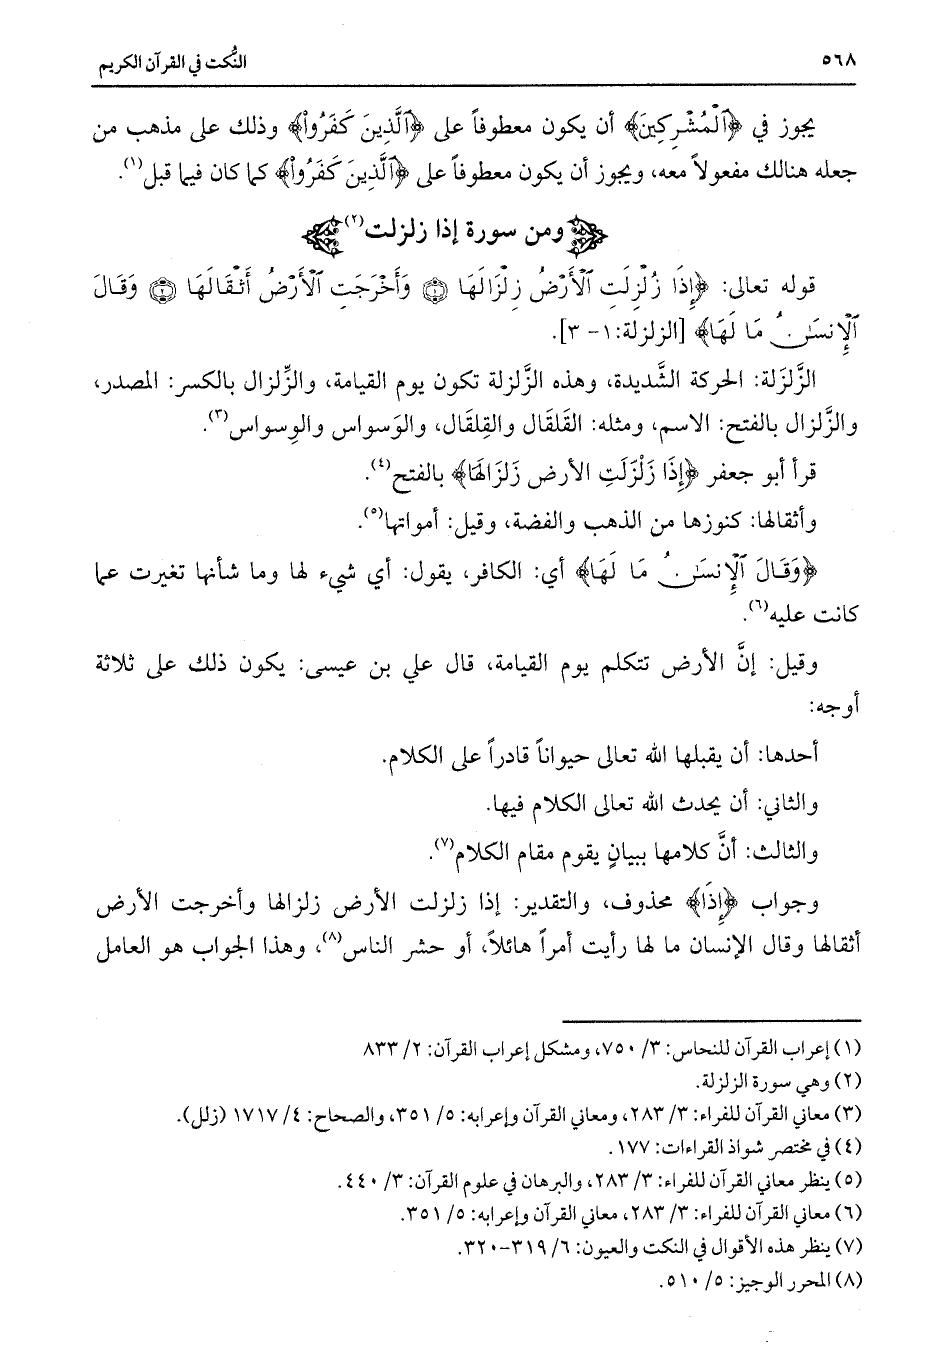 ٥٦٨ النُّكت في القرآن الكريم
يجوز في ﴿ٱلْمُشْرِكِينَ﴾ أن يكون معطوفاً على ﴿ٱلَّذِينَ كَفَرُوا۟﴾ وذلك على مذهب من
جعله هنالك مفعولاً معه، ويجوز أن يكون معطوفاً على ﴿ٱلَّذِينَ كَفَرُوا۟﴾ كما كان فيما قبل(١).
ومن سورة إذا زلزلت(٢)
قوله تعالى: ﴿إِذَا زُلْزِلَتِ ٱلْأَرْضُ زِلْزَالَهَا ۝١ وَأَخْرَجَتِ ٱلْأَرْضُ أَثْقَالَهَا ۝٢ وَقَالَ
ٱلْإِنسَـٰنُ مَا لَهَا﴾ [الزلزلة: ١- ٣].
الزَّلزَلة: الحركة الشَّديدة، وهذه الزَّلزلة تكون يوم القيامة، والزِّلزال بالكسر: المصدر،
والزَّلزال بالفتح: الاسم، ومثله: القَلقَال والقِلقَال، والوَسواس والوِسواس(٣).
قرأ أبو جعفر ﴿إِذَا زَلْزَلَتِ الأرض زَلزَالَها﴾ بالفتح(٤).
وأثقالها: كنوزها من الذهب والفضة، وقيل: أمواتها(٥).
﴿وَقَالَ ٱلْإِنسَـٰنُ مَا لَهَا﴾ أي: الكافر، يقول: أي شيء لها وما شأنها تغيرت عما
كانت عليه(٦).
وقيل: إنَّ الأرض تتكلم يوم القيامة، قال علي بن عيسى: يكون ذلك على ثلاثة
أوجه:
أحدها: أن يقبلها الله تعالى حيواناً قادراً على الكلام.
والثاني: أن يحدث الله تعالى الكلام فيها.
والثالث: أنَّ كلامها ببيانٍ يقوم مقام الكلام(٧).
وجواب ﴿إِذَا﴾ محذوف، والتقدير: إذا زلزلت الأرض زلزالها وأخرجت الأرض
أثقالها وقال الإنسان ما لها رأيت أمراً هائلاً، أو حشر الناس(٨)، وهذا الجواب هو العامل
(١) إعراب القرآن للنحاس: ٣/ ٧٥٠، ومشكل إعراب القرآن: ٢/ ٨٣٣
(٢) وهي سورة الزلزلة.
(٣) معاني القرآن للفراء: ٣/ ٢٨٣، ومعاني القرآن وإعرابه: ٥/ ٣٥١، والصحاح: ٤/ ١٧١٧ (زلل).
(٤) في مختصر شواذ القراءات: ١٧٧.
(٥) ينظر معاني القرآن للفراء: ٣/ ٢٨٣، والبرهان في علوم القرآن: ٣/ ٤٤٠.
(٦) معاني القرآن للفراء: ٣/ ٢٨٣، معاني القرآن وإعرابه: ٥/ ٣٥١.
(٧) ينظر هذه الأقوال في النكت والعيون: ٦/ ٣١٩-٣٢٠.
(٨) المحرر الوجيز: ٥/ ٥١٠.